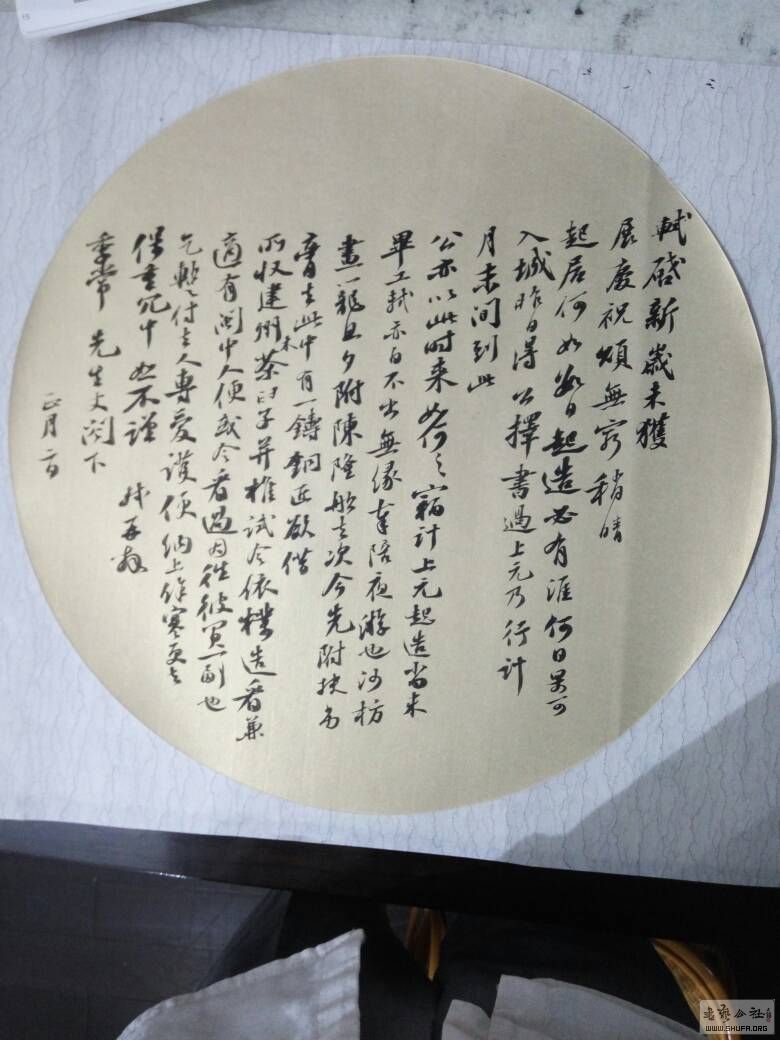 軾啓新歲未獲
展慶祝頌無窮稍晴
起居何如數日起造必有涯何日果可
入城昨日得公擇書過上元乃行計
月末間到此
公亦以此時來如何々竊計上元起造尚未
畢工軾亦自不出無緣奉陪夜游也沙枋
畫籠旦夕附陳隆船去次今先附扶劣
膏去此中有一鑄銅匠欲借
所收建州木茶臼子并椎試令依樣造看兼
適有閩中人便或令看過因往彼買一副也
乞暫付去人專愛護便納上作寒更乞
保重冗中恕不謹 軾再拜
季常 先生丈閣下
正月二日
WWW.SHUFA.ORG